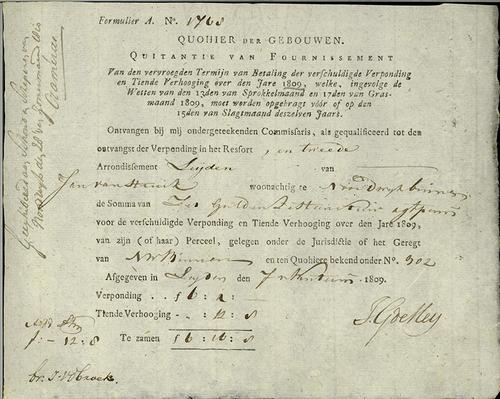 Formulier A. No. 1768
QUOHIER DER GEBOUWEN.
QUITANTIE VAN FOURNISSEMENT
Van den vervroegden Termijn van Betaling der verschuldigde Verponding
en Tiende Verhooging over den Jare 1809, welke, ingevolge de
Wetten van den 13den van Sprokkelmaand en 17den van Gras-
maand 1809, moet worden opgebragt vóór of op den
15den van Slagtmaand deszelven Jaars.
Ontvangen bij mij ondergeteekenden Commisaris, als gequalificeerd tot den
ontvangst der Verponding in het Resort, en tweede
Arrondissement Leijden van
Jan van woonachtig te Noordwijk binnen
de Somma van Zes Gulden
voor de verschuldigde Verponding en Tiende Verhooging over den Jare 1809,
van zijn (of haar) Perceel, gelegen onder de Jurisdictie of het Geregt
van NW Binnen en ten Quohiere bekend onder No. 302
Afgegeven in Leijden den 1809.
Verponding . . f 6 : 4 : —
Tiende Verhooging - . : 12 : 8
Te zamen f 6 : 16 : 8
f : — 12 : 8